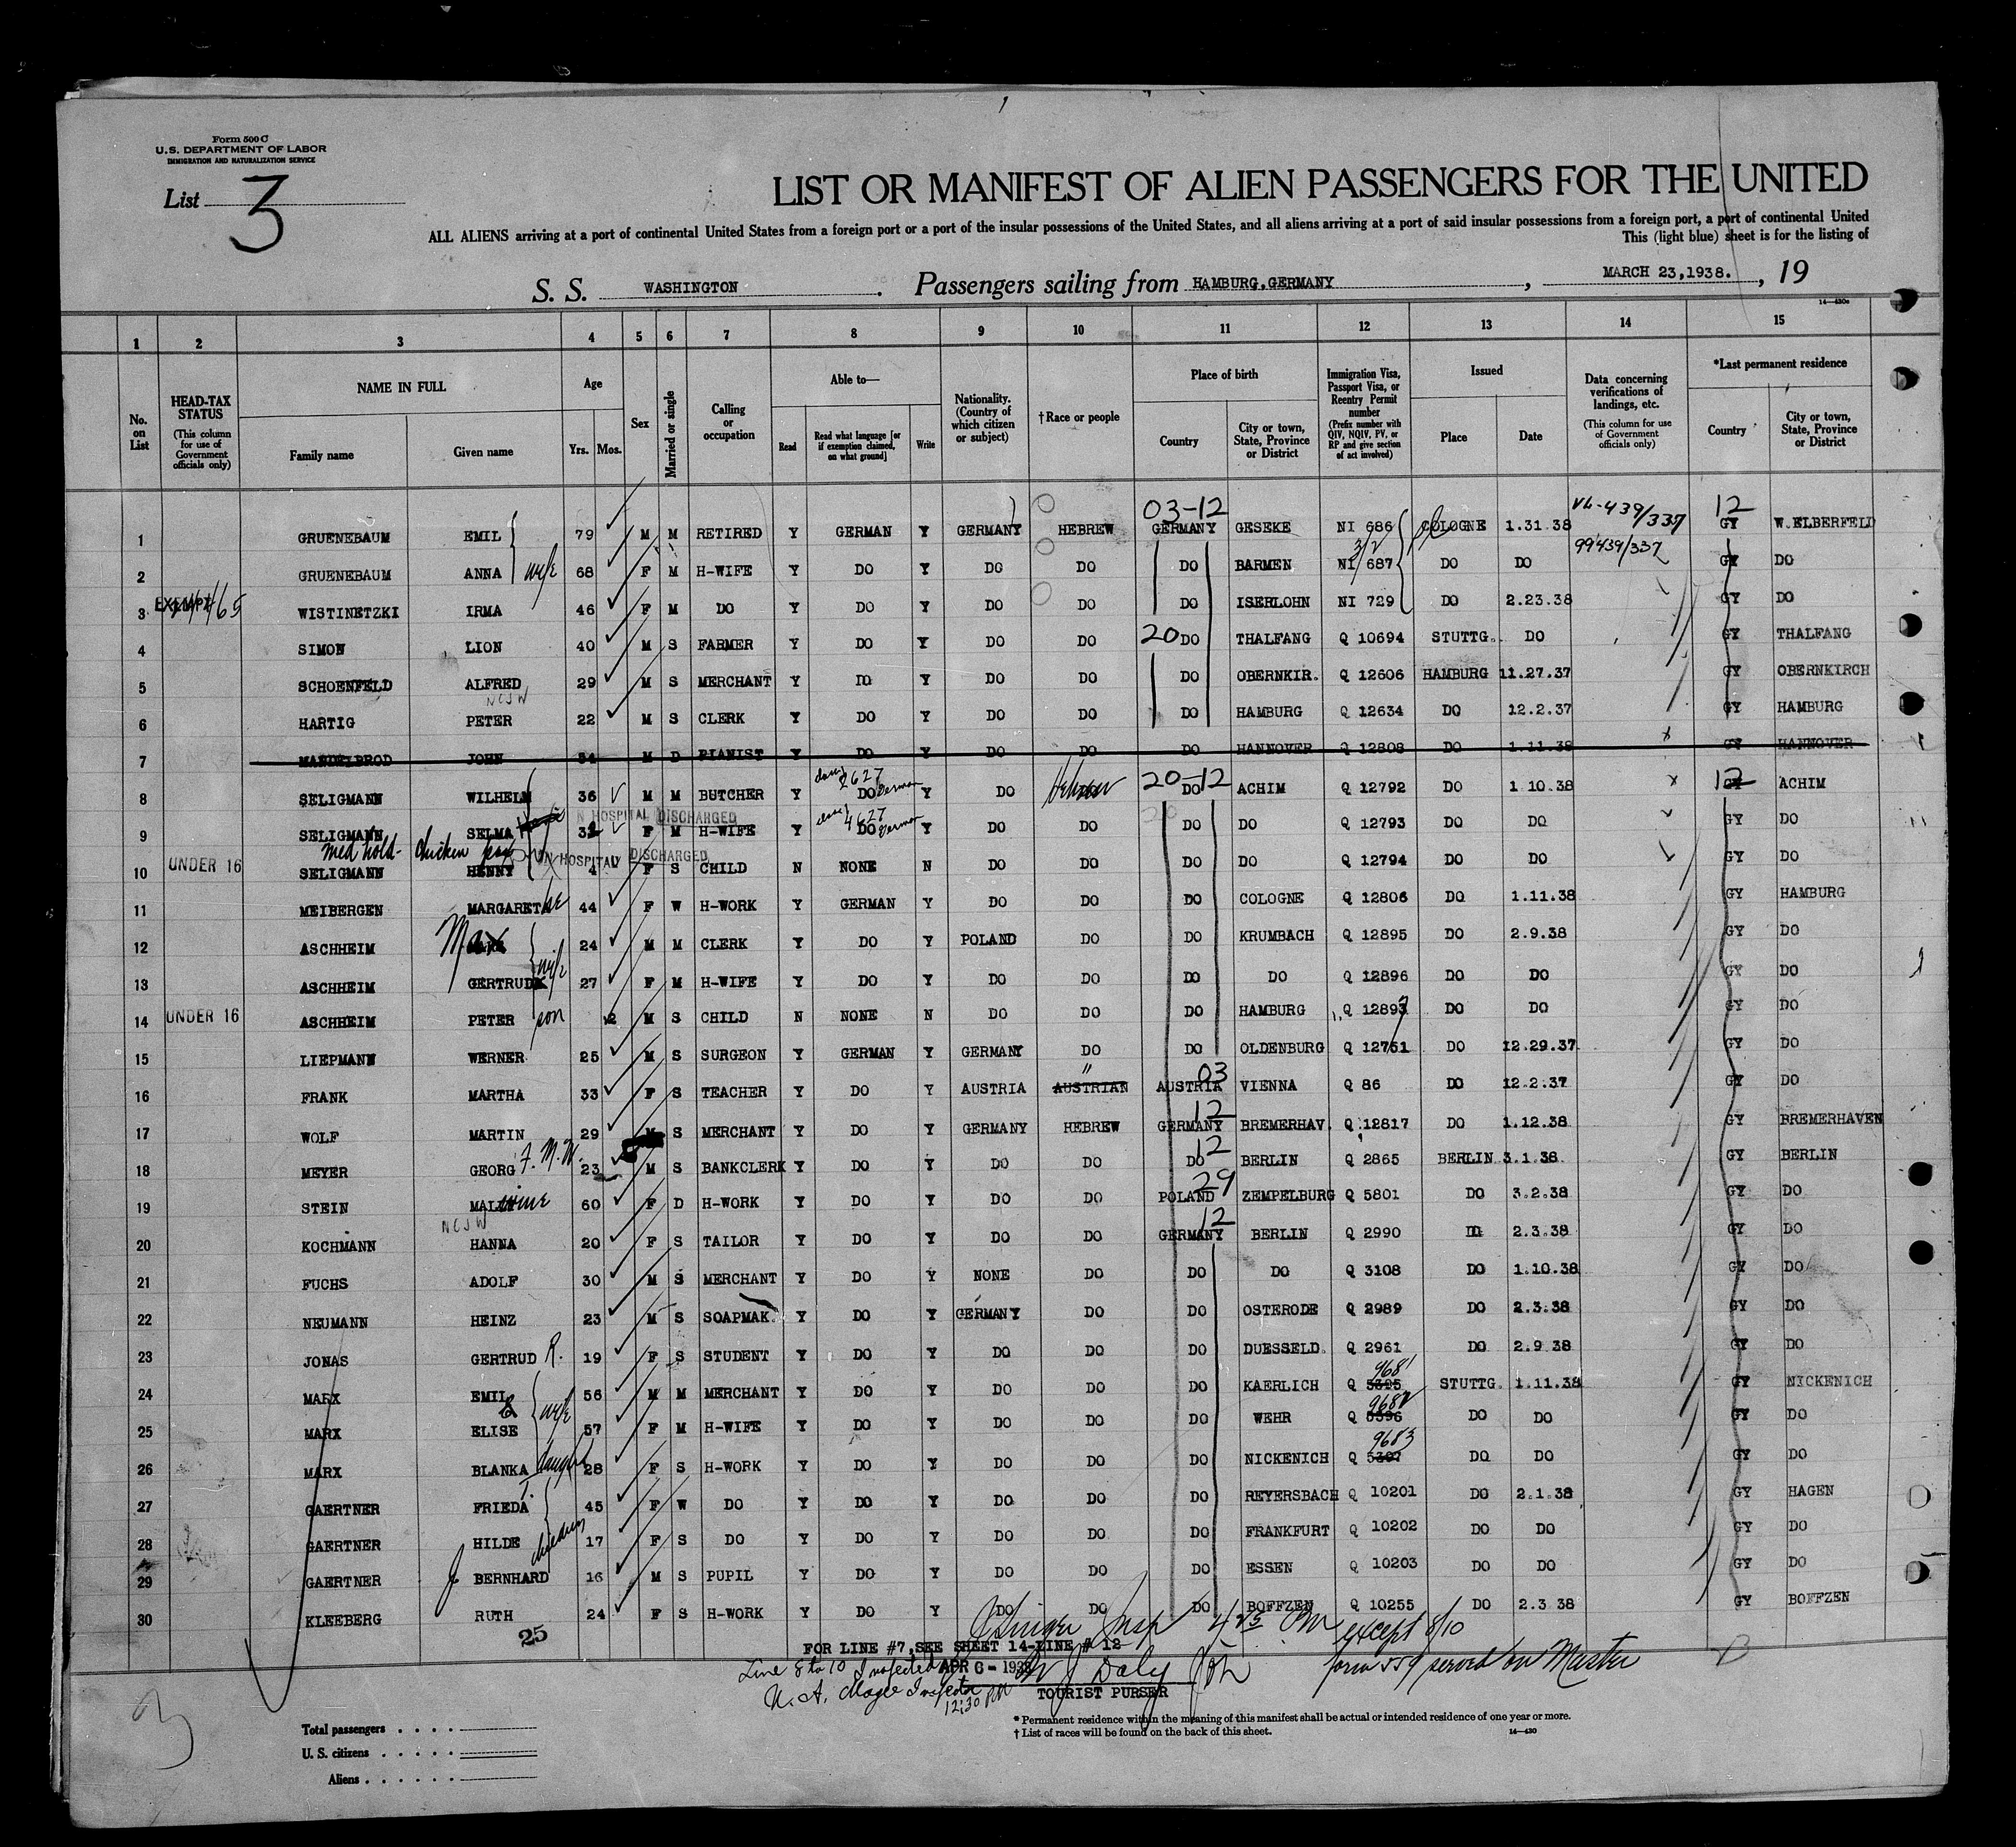 Form 500 C
U.S. DEPARTMENT OF LABOR
IMMIGRATION AND NATURALIZATION SERVICE
List 3
LIST OR MANIFEST OF ALIEN PASSENGERS FOR THE UNITED
ALL ALIENS arriving at a port of continental United States from a foreign port or a port of the insular possessions of the United States, and all aliens arriving at a port of said insular possessions from a foreign port, a port of continental United
This (light blue) sheet is for the listing of
S. S. WASHINGTON . Passengers sailing from HAMBURG,GERMANY , MARCH 23,1938. , 19
14—430c
1 2 3 4 5 6 7 8 9 10 11 12 13 14 15
No. on List
HEAD-TAX STATUS
(This column for use of Government officials only)
NAME IN FULL
Family name
Given name
Age
Yrs. Mos.
Sex
Married or single
Calling or occupation
Able to—
Read
Read what language [or if exemption claimed, on what ground]
Write
Nationality. (Country of which citizen or subject)
† Race or people
Place of birth
Country
City or town, State, Province or District
Immigration Visa, Passport Visa, or Reentry Permit number
(Prefix number with QIV, NQIV, PV, or RP and give section of act involved)
Issued
Place
Date
Data concerning verifications of landings, etc.
(This column for use of Government officials only)
*Last permanent residence
Country
City or town, State, Province or District
03-12 12
1 GRUENEBAUM EMIL 79 M M RETIRED Y GERMAN Y GERMANY HEBREW GERMANY GESEKE NI 686 COLOGNE 1.31.38 439/337 GY W.ELBERFELD
2 GRUENEBAUM ANNA wife 68 F M H-WIFE Y DO Y DO DO DO BARMEN NI 687 DO DO 99439/337 GY DO
3 EXEMPT WISTINETZKI IRMA 46 F M DO Y DO Y DO DO DO ISERLOHN NI 729 DO 2.23.38 GY DO
4 SIMON LION 40 M S FARMER Y DO Y DO DO 20 DO THALFANG Q 10694 STUTTG. DO GY THALFANG
5 SCHOENFELD ALFRED 29 M S MERCHANT Y DO Y DO DO DO OBERNKIR. Q 12606 HAMBURG 11.27.37 GY OBERNKIRCH
NCJW
6 HARTIG PETER 22 M S CLERK Y DO Y DO DO DO HAMBURG Q 12634 DO 12.2.37 GY HAMBURG
7 MANDELBROD JOHN 34 M D PIANIST Y DO Y DO DO DO HANNOVER Q 12808 DO 1.11.38 GY HANNOVER
8 SELIGMANN WILHELM 36 M M BUTCHER Y DO German Y DO Hebrew 20-12 DO ACHIM Q 12792 DO 1 10.38 12 GY ACHIM
IN HOSPITAL DISCHARGED
9 SELIGMANN SELMA 32 F M H-WIFE Y DO German Y DO DO DO DO Q 12793 DO DO GY DO
med hold - chicken pox IN HOSPITAL DISCHARGED
10 UNDER 16 SELIGMANN HENNY 4 F S CHILD N NONE N DO DO DO DO Q 12794 DO DO GY DO
11 MEIBERGEN MARGARETHE 44 F W H-WORK Y GERMAN Y DO DO DO COLOGNE Q 12806 DO 1.11.38 GY HAMBURG
12 ASCHHEIM Max 24 M M CLERK Y DO Y POLAND DO DO KRUMBACH Q 12895 DO 2.9.38 GY DO
13 ASCHHEIM GERTRUD wife 27 F M H-WIFE Y DO Y DO DO DO DO Q 12896 DO DO GY DO
14 UNDER 16 ASCHHEIM PETER son 2 M S CHILD N NONE N DO DO DO HAMBURG Q 12897 DO DO GY DO
15 LIEPMANN WERNER 25 M S SURGEON Y GERMAN Y GERMANY DO DO OLDENBURG Q 12751 DO 12.29.37 GY DO
16 FRANK MARTHA 33 F S TEACHER Y DO Y AUSTRIA AUSTRIAN " AUSTRIA 03 VIENNA Q 86 DO 12.2.37 GY DO
17 WOLF MARTIN 29 M S MERCHANT Y DO Y GERMANY HEBREW GERMANY 12 BREMERHAV. Q 12817 DO 1.12.38 GY BREMERHAVEN
18 MEYER GEORG F. M. W. 23 M S BANKCLERK Y DO Y DO DO DO 12 BERLIN Q 2865 BERLIN 3.1.38 GY BERLIN
19 STEIN MALwine 60 F D H-WORK Y DO Y DO DO POLAND 29 ZEMPELBURG Q 5801 DO 3.2.38 GY DO
NCJW
20 KOCHMANN HANNA 20 F S TAILOR Y DO Y DO DO GERMANY 12 BERLIN Q 2990 DO 2.3.38 GY DO
21 FUCHS ADOLF 30 M S MERCHANT Y DO Y NONE DO DO DO Q 3108 DO 1.10.38 GY DO
22 NEUMANN HEINZ 23 M S SOAPMAK. Y DO Y GERMANY DO DO OSTERODE Q 2989 DO 2.3.38 GY DO
23 JONAS GERTRUD R. 19 F S STUDENT Y DO Y DO DO DO DUESSELD. Q 2961 DO 2.9 38 GY DO
24 MARX EMIL 56 M M MERCHANT Y DO Y DO DO DO KAERLICH Q 5395 9681 STUTTG. 1.11.38 GY NICKENICH
25 MARX ELISE wife 57 F M H-WIFE Y DO Y DO DO DO WEHR Q 5396 9682 DO DO GY DO
26 MARX BLANKA daught 28 F S H-WORK Y DO Y DO DO DO NICKENICH Q 5397 9683 DO DO GY DO
27 GAERTNER FRIEDA 45 F W DO Y DO Y DO DO DO REYERSBACH Q 10201 DO 2.1.38 GY HAGEN
28 GAERTNER HILDE children 17 F S DO Y DO Y DO DO DO FRANKFURT Q 10202 DO DO GY DO
29 GAERTNER BERNHARD 16 M S PUPIL Y DO Y DO DO DO ESSEN Q 10203 DO DO GY DO
30 KLEEBERG RUTH 24 F S H-WORK Y DO Y DO DO DO BOFFZEN Q 10255 DO 2.3 38 GY BOFFZEN
25
Insp 4 25 PM except 8/10
FOR LINE #7,SEE SHEET 14-LINE # 12
Line 8 to 10 Inspected APR 6 - 1938 Daly form 559 served on Master
N. A. Magee Inspector 12:30 PM TOURIST PURSER
3
Total passengers . . . .
U. S. citizens . . . . .
Aliens . . . . . .
* Permanent residence within the meaning of this manifest shall be actual or intended residence of one year or more.
† List of races will be found on the back of this sheet.
14—430